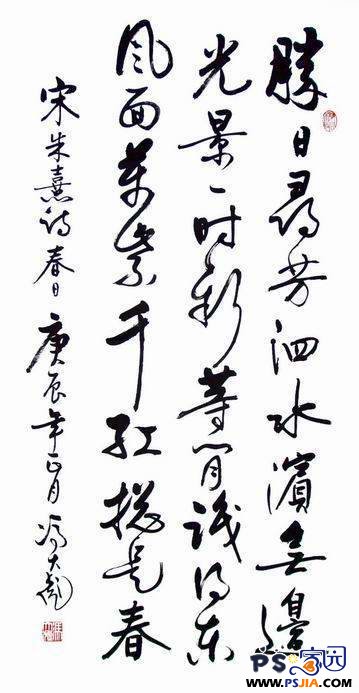 勝日尋芳泗水濱無邊
光景一时新等閒識得東
風面萬紫千紅總是春
宋朱熹詩春日 庚辰年正月 馮大彪
PS家园
WWW.PSJIA.COM